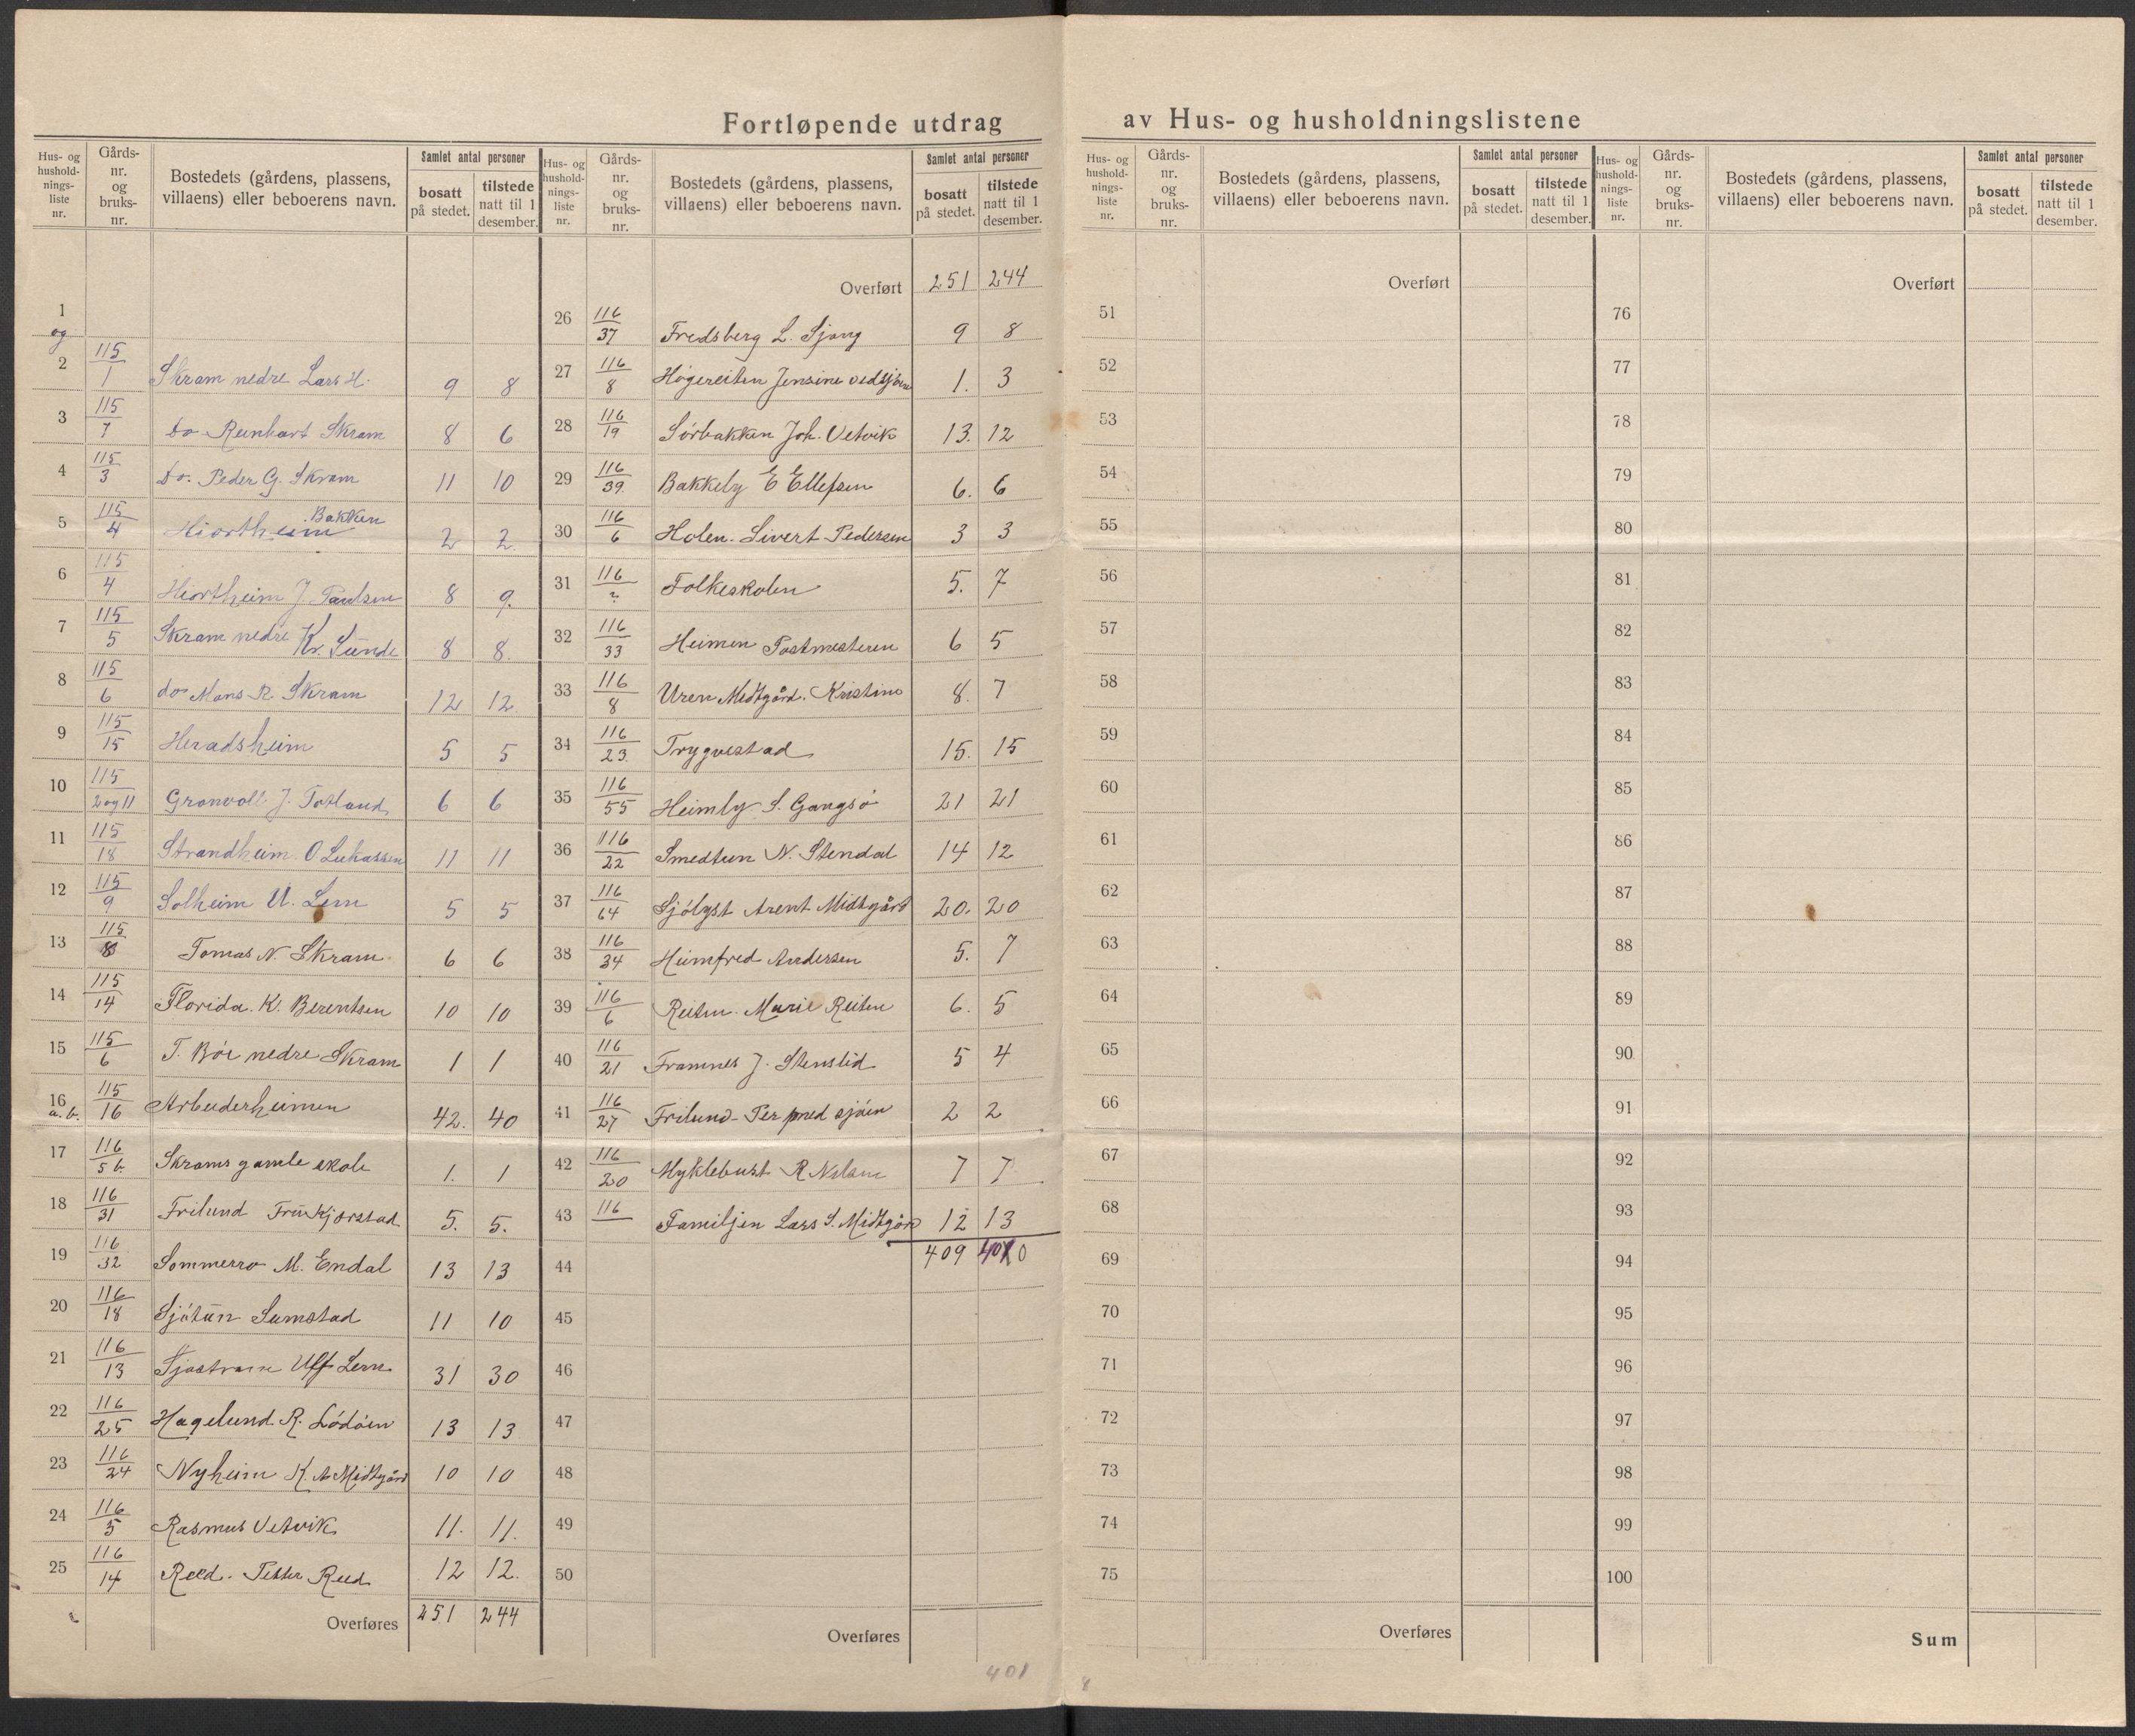 Fortløpende utdrag av Hus- og husholdningslistene
Hus- og hushold-nings-liste nr. | Gårds-nr. og bruks-nr. | Bostedets (gårdens, plassens, villaens) eller beboerens navn. | Samlet antal personer | bosatt på stedet. | tilstede natt til 1 desember.
1 og
2 115/1 Skram nedre Lars H. 9 8
3 115/7 do Reinhart Skram 8 6
4 115/3 do. Peder G. Skram 11 10
5 115/4 Hiortheim Bakken 2 2.
6 115/4 Hiortheim J. Paulsen 8 9.
7 115/5 Skram nedre Kr. Sunde 8 8.
8 115/6 do Mons R. Skram 12 12.
9 115/15 Heradsheim 5 5
10 115/2 og 11 Gronvoll J. Totland 6 6
11 115/18 Strandheim O Lukassen 11 11
12 115/9 Solheim U. Lem 5 5
13 115/8 Tomas N. Skram 6 6
14 115/14 Florida. K. Berentsen 10 10
15 115/6 T. Böe nedre Skram 1 1
16 a.b. 115/16 Arbeiderheimen 42. 40
17 116/5 b. Skrams gamle skole 1. 1
18 116/31 Frilund Frü Kjørstad 5. 5.
19 116/32 Sommerro M. Endal 13 13
20 116/18 Sjötün Sumstad 11 10
21 116/13 Uff Lem 31 30
22 116/25 Hagelund R. Lödöen 13 13
23 116/24 Nyheim K. A Midtgård 10 10
24 116/5 Rasmus Vetvik 11. 11.
25 116/14 Reed. Petter Reed 12 12.
Overføres 251 244
Hus- og hushold-nings-liste nr. | Gårds-nr. og bruks-nr. | Bostedets (gårdens, plassens, villaens) eller beboerens navn. | Samlet antal personer | bosatt på stedet. | tilstede natt til 1 desember.
Overført 251 244
26 116/37 Fredsberg L. Sjong 9 8
27 116/8 Högereiten Jensine vedsjöen 1. 3
28 116/19 Sörbakken Joh. Vetvik 13. 12
29 116/39. Bakkely E Ellefsen 6. 6
30 116/6 Holen. Sivert Pedersen 3 3
31 116/? Folkeskolen 5. 7
32 116/33 Heimen Postmesteren 6 5
33 116/8 Uren Midtgård. Kristine 8. 7
34 116/23. Trygvestad 15. 15
35 116/55 Heimly S. Gangsö 21 21
36 116/22 Smedtun N. Stendal 14 12
37 116/64 Sjölyst Arent Midtgård 20. 20
38 116/34 Heimfred Andersen 5. 7
39 116/6 Reiten. Marie Reiten 6. 5
40 116/21 Framnes J. Stenslid 5 4
41 116/27 Frilund - Per med sjöen 2 2
42 116/20 Myklebust R Nilsen 7 7
43 116 Familjen Lars S. Midtgård 12 13
409
44
45
46
47
48
49
50
Overføres
401
Hus- og hushold-nings-liste nr. | Gårds-nr. og bruks-nr. | Bostedets (gårdens, plassens, villaens) eller beboerens navn. | Samlet antal personer | bosatt på stedet. | tilstede natt til 1 desember.
Overført
51
52
53
54
55
56
57
58
59
60
61
62
63
64
65
66
67
68
69
70
71
72
73
74
75
Overføres
8
Hus- og hushold-nings-liste nr. | Gårds-nr. og bruks-nr. | Bostedets (gårdens, plassens, villaens) eller beboerens navn. | Samlet antal personer | bosatt på stedet. | tilstede natt til 1 desember.
Overført
76
77
78
79
80
81
82
83
84
85
86
87
88
89
90
91
92
93
94
95
96
97
98
99
100
Sum